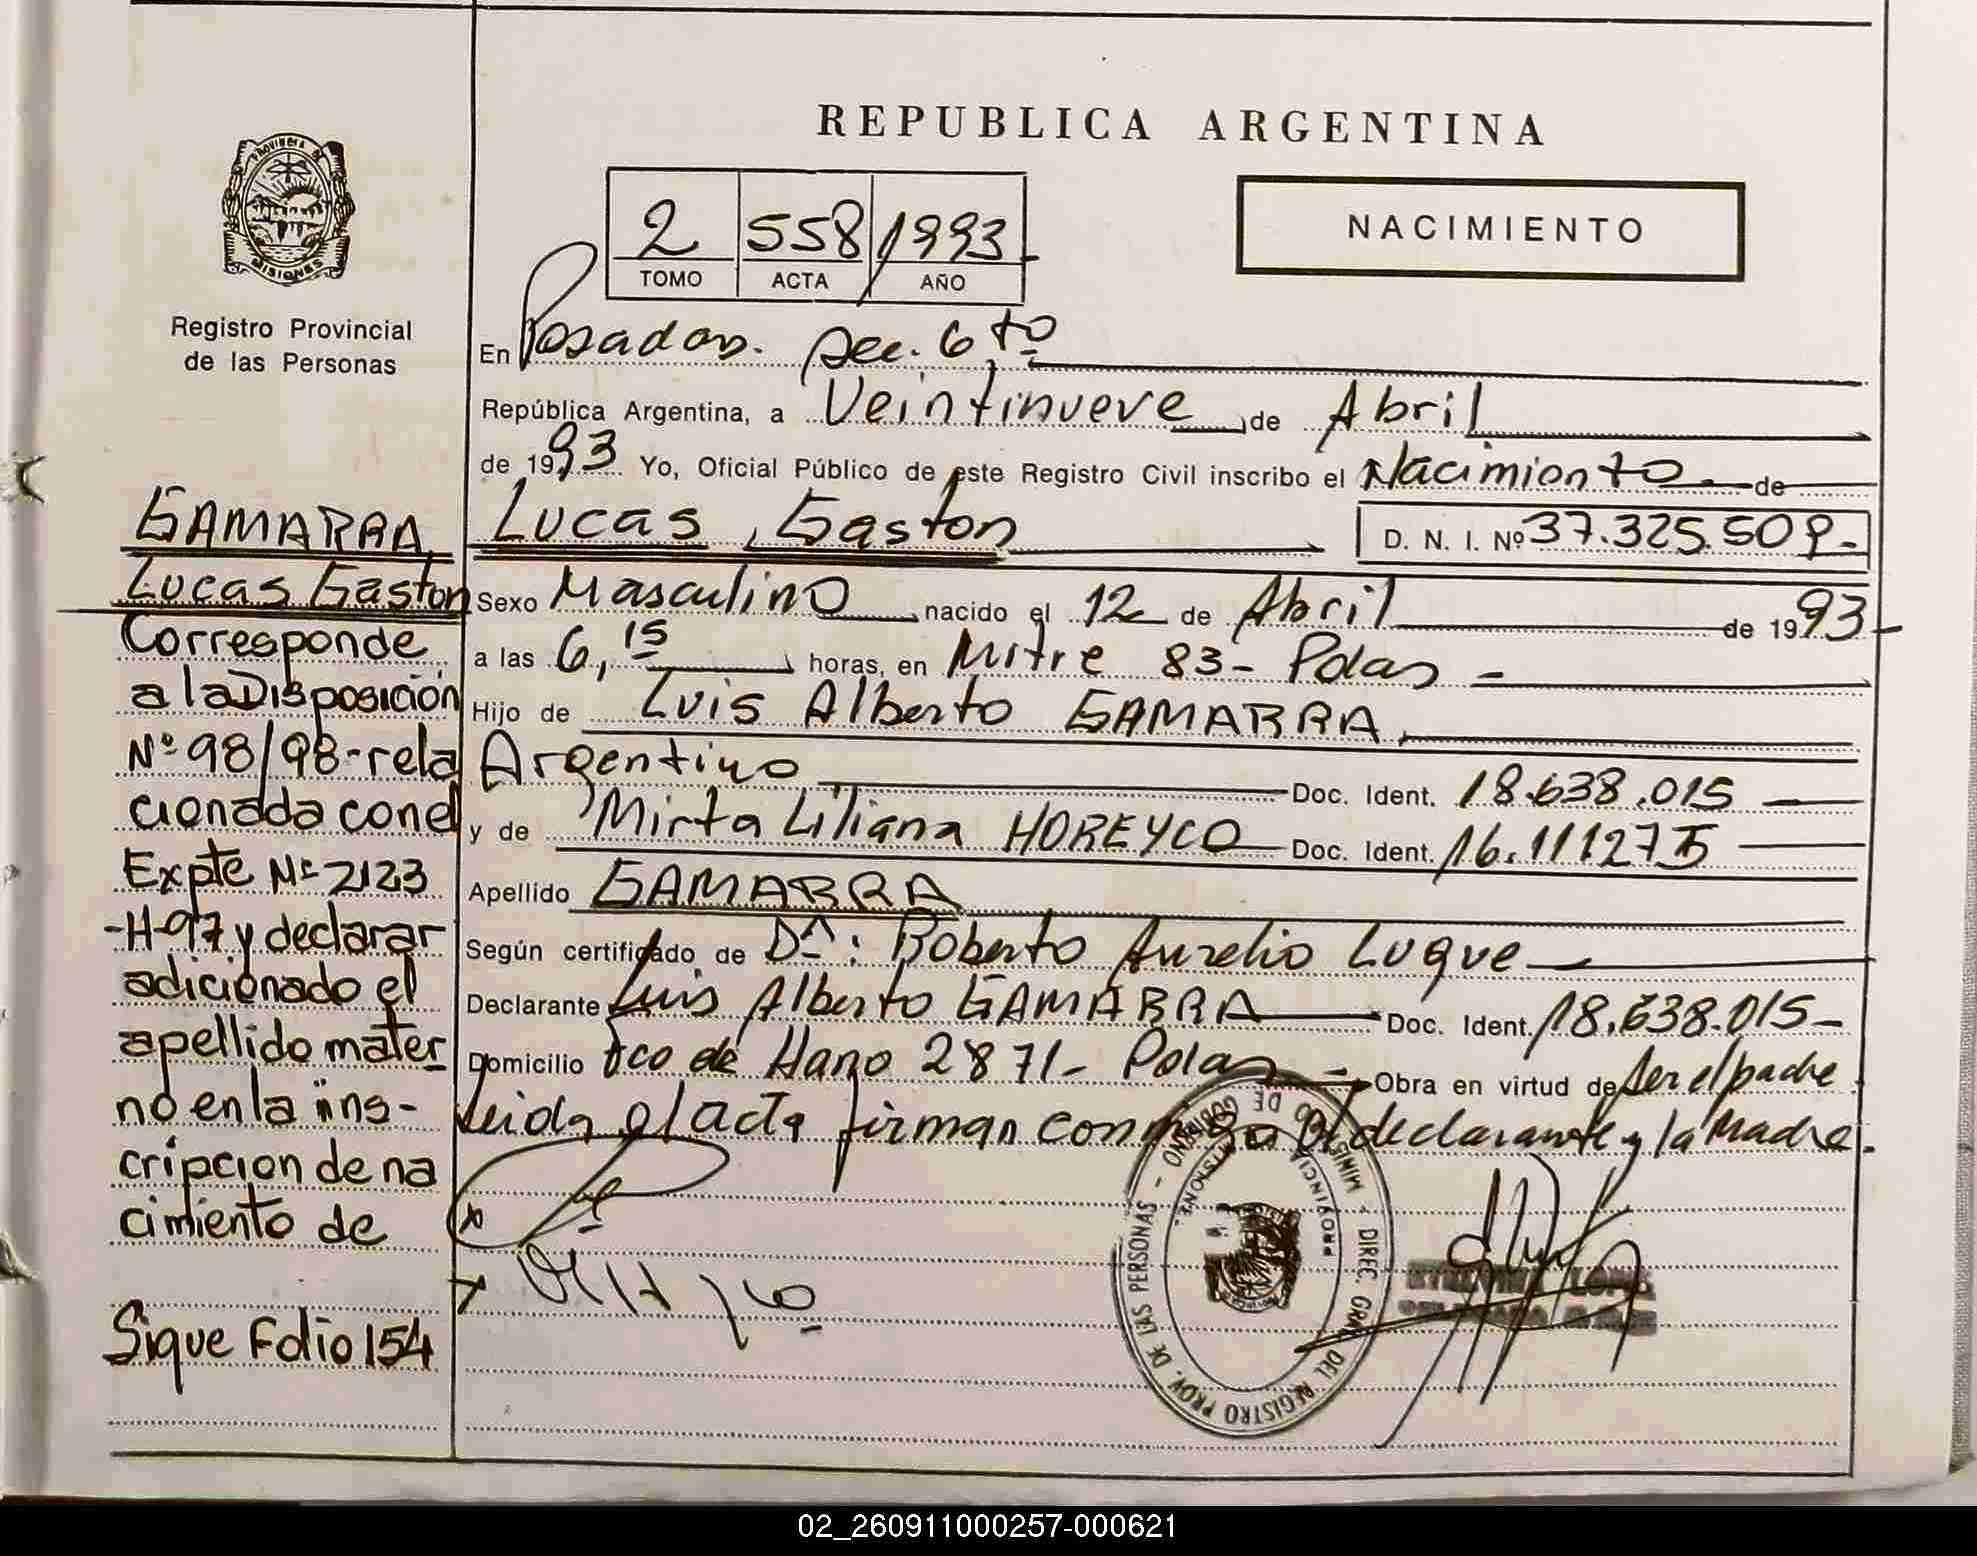 REPUBLICA ARGENTINA
PROVINCIA DE
MISIONES
Registro Provincial
de las Personas
2 558 1993
TOMO ACTA AÑO
NACIMIENTO
En Posadas. Sec. 6to
República Argentina, a Veintinueve de Abril
de 1993 Yo, Oficial Público de este Registro Civil inscribo el Nacimiento de
Lucas Gaston D. N. I. Nº 37.325.509.-
Sexo Masculino nacido el 12 de Abril de 1993
a las 6,15 horas, en Mitre 83- Pdas -
Hijo de Luis Alberto GAMARRA,
Argentino Doc. Ident. 18.638.015
y de Mirta Liliana HOREYCO Doc. Ident. 16.111275
Apellido GAMARRA
Según certificado de Dr: Roberto Aurelio Luque
Declarante Luis Alberto GAMARRA Doc. Ident. 18.638.015-
Domicilio Fco de Haro 2871- Pdas - Obra en virtud de Ser el padre
Leida el acta firman conmigo el declarante y la Madre.
GAMARRA
Lucas Gaston
Corresponde
a la Disposición
Nº 98/98-rela
cionada con el
Expte Nº 2123
-H-97 y declarar
adicionado el
apellido mater
no en la ins-
cripcion de na
cimiento de
Sigue Folio 154
MINIS DE GOBIERNO - DIREC. GRAL DEL REGISTRO PROV. DE LAS PERSONAS -
PROVINCIA MISIONES
02_260911000257-000621